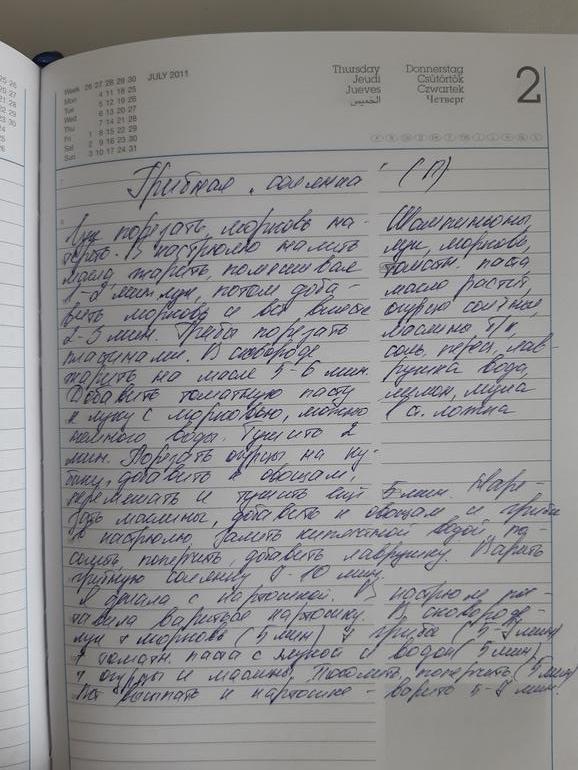 Week 26 27 28 29 30 JULY 2011
Mon 4 11 18 25
Tue 5 12 19 26
Wed 6 13 20 27
Thu 7 14 21 28
Fri 1 8 15 22 29
Sat 2 9 16 23 30
Sun 3 10 17 24 31
Thursday Donnerstag
Jeudi Csütörtök
Jueves Czwartek
الخميس Четверг
2
Грибная "солянка" (П)
Лук порезать, морковь на-
тереть. В кастрюлю налить
масло, жарить, помешивая
1-2 мин лук, потом доба-
вить морковь и все вместе
2-3 мин. Грибы порезать
пластинами. В сковороде
жарить на масле 5-6 мин.
Добавить томатную пасту
к луку с морковью, можно
немного воды. Тушить 2
мин. Порезать огурцы на ку-
бики, добавить к овощам,
перемешать и тушить ещё 5 мин. Наре-
зать маслины, добавить к овощам и грибы
в кастрюлю, залить кипяченой водой, по-
солить, поперчить, добавить лаврушку. Варить
грибную солянку 7-10 мин.
Я делала с картошкой. В кастрюле пос-
тавила варить картошку. В сковороде
лук + морковь (5 мин) + грибы (5-7 мин)
+ томатн. паста с мукой и водой (5 мин)
+ огурцы и маслины. Посолить, поперчить (5 мин)
Все выпать к картошке - варить 5-7 мин.
Шампиньоны,
лук, морковь,
томатн. паста
масло растит,
огурцы солёные,
маслины б/к,
соль, перец, лав-
рушка вода,
лимон, мука
1 с. ложка